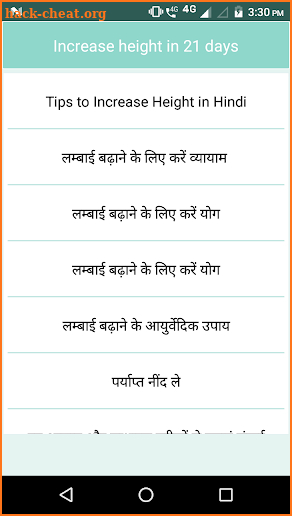 hack-cheat.org
4G 4G 3:30 PM
Increase height in 21 days
Tips to Increase Height in Hindi
लम्बाई बढ़ाने के लिए करें व्यायाम
लम्बाई बढ़ाने के लिए करें योग
लम्बाई बढ़ाने के लिए करें योग
लम्बाई बढ़ाने के आयुर्वेदिक उपाय
पर्याप्त नींद ले